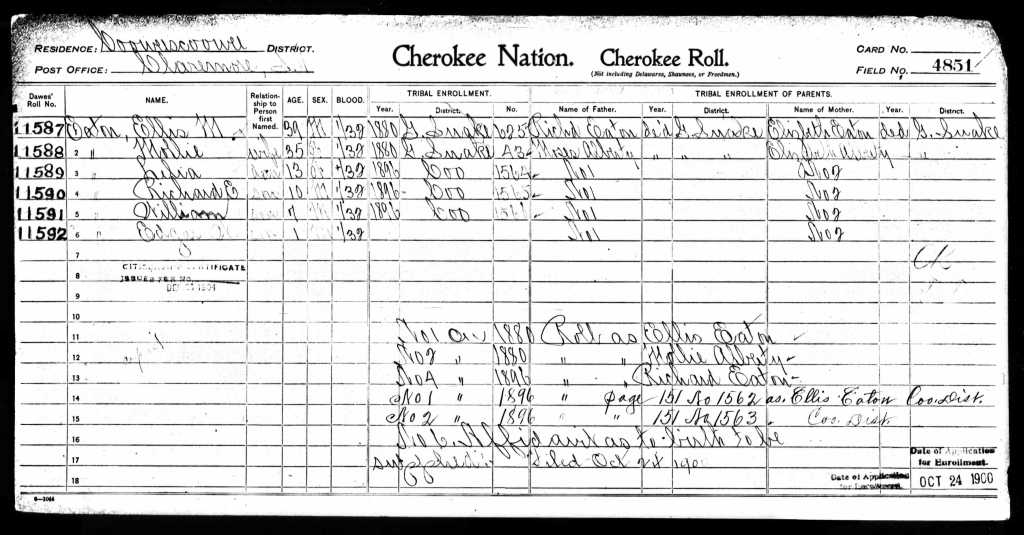 RESIDENCE: Coowescoowee DISTRICT. Cherokee Nation. Cherokee Roll. CARD NO.
POST OFFICE: Claremore, I.T. (Not including Delawares, Shawnees, or Freedmen.) FIELD NO. 4851
Dawes' Roll No. NAME. Relationship to Person first Named. AGE. SEX. BLOOD. TRIBAL ENROLLMENT. Year. District. No. TRIBAL ENROLLMENT OF PARENTS. Name of Father. Year. District. Name of Mother. Year. District.
11587 Eaton, Ellis M 39 M 1/32 1880 G. Snake 625 Rich'd Eaton de'd G. Snake Elizabeth Eaton ded G. Snake
11588 2 " Mollie wife 35 1/32 1880 G. Snake 43 Moses Alberty " " " Elizabeth Alberty "
11589 3 " 13 1/32 1896 Coo 1564 No1 No2
11590 4 " Richard E son 10 M 1/32 1896 Coo 1565 No1 No2
11591 5 " William son 7 M 1/32 1896 Coo No1 No2
11592 6 " 1 1/32 No1 No2
7
CITIZENSHIP CERTIFICATE
8
ISSUED FOR NO.
9
10
11 No1 on 1880 Roll as Ellis Eaton
12 No2 " 1880 " " Mollie Alberty
13 No4 " 1896 " " Richard Eaton
14 No 1 " 1896 " page 151 No 1562 as Ellis Eaton Coo. Dist.
15 No 2 " 1896 " " 151 No 1563 Coo. Dist.
16 No 6 Affidavit as to birth to be
17 supplied:- Filed Oct 24 190
Date of Application for Enrollment.
18 Date of Application for Enrollment. OCT 24 1900